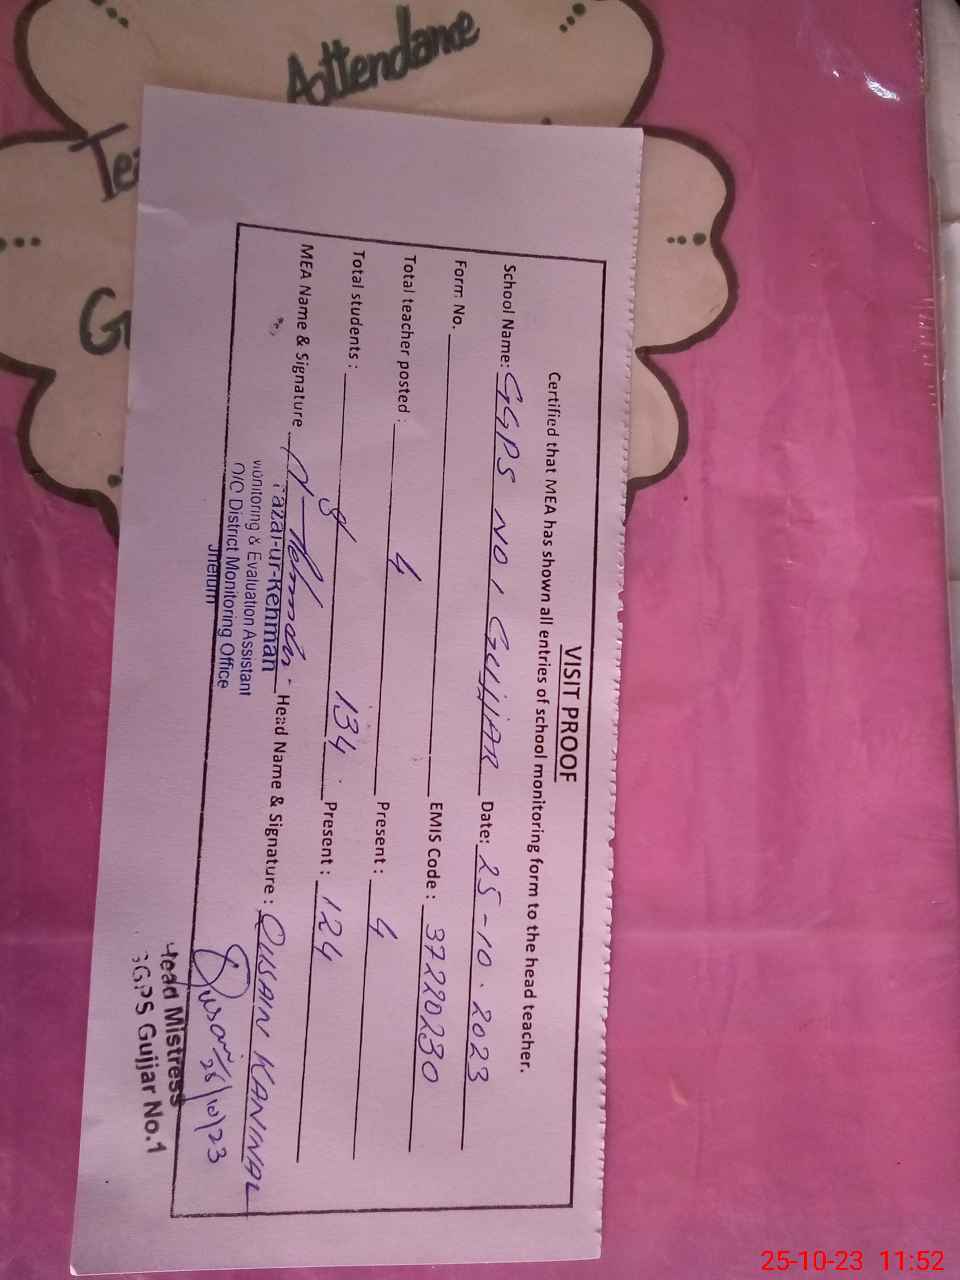 Attendance
VISIT PROOF
Certified that MEA has shown all entries of school monitoring form to the head teacher.
School Name: GGPS NO 1 GUJJAR Date: 25-10.2023
Form No. EMIS Code : 37220230
Total teacher posted : 4 Present : 4
Total students : 134 Present : 124
MEA Name & Signature Head Name & Signature : QUSAIN KANINAL
azal-ur-Rehman
Monitoring & Evaluation Assistant
O/C District Monitoring Office
Jhelum
Head Mistress
GGPS Gujjar No.1
25-10-23 11:52